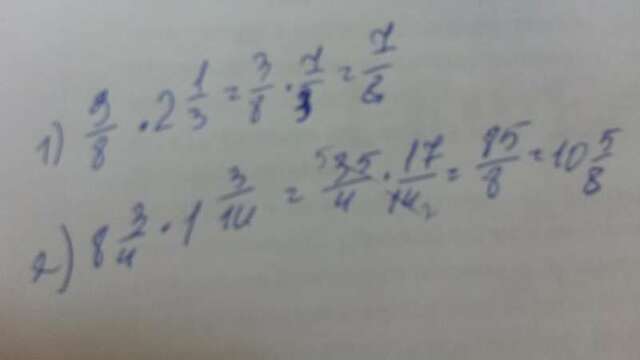 1) 3/8 · 2 1/3 = 3/8 · 7/3 = 7/8
2) 8 3/4 · 1 3/14 = 5 35/4 · 17/14 2 = 85/8 = 10 5/8